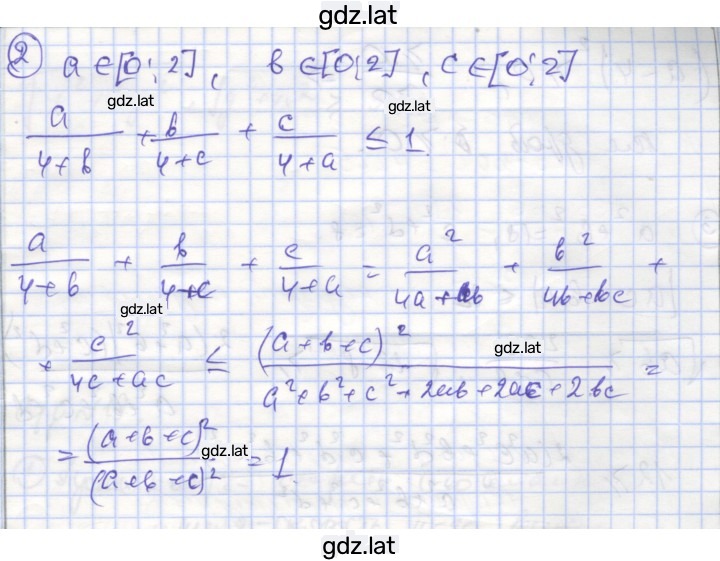 gdz.lat
② a ∈ [0; 2], b ∈ [0; 2], c ∈ [0; 2]
gdz.lat gdz.lat
a/(4+b) + b/(4+c) + c/(4+a) ≤ 1.
a/(4+b) + b/(4+c) + c/(4+a) = a²/(4a+ab) + b²/(4b+bc) +
gdz.lat
+ c²/(4c+ac) ≤ (a+b+c)²/(a²+b²+c²+2ab+2ac+2bc) =
gdz.lat
= (a+b+c)²/(a+b+c)² = 1.
gdz.lat
gdz.lat